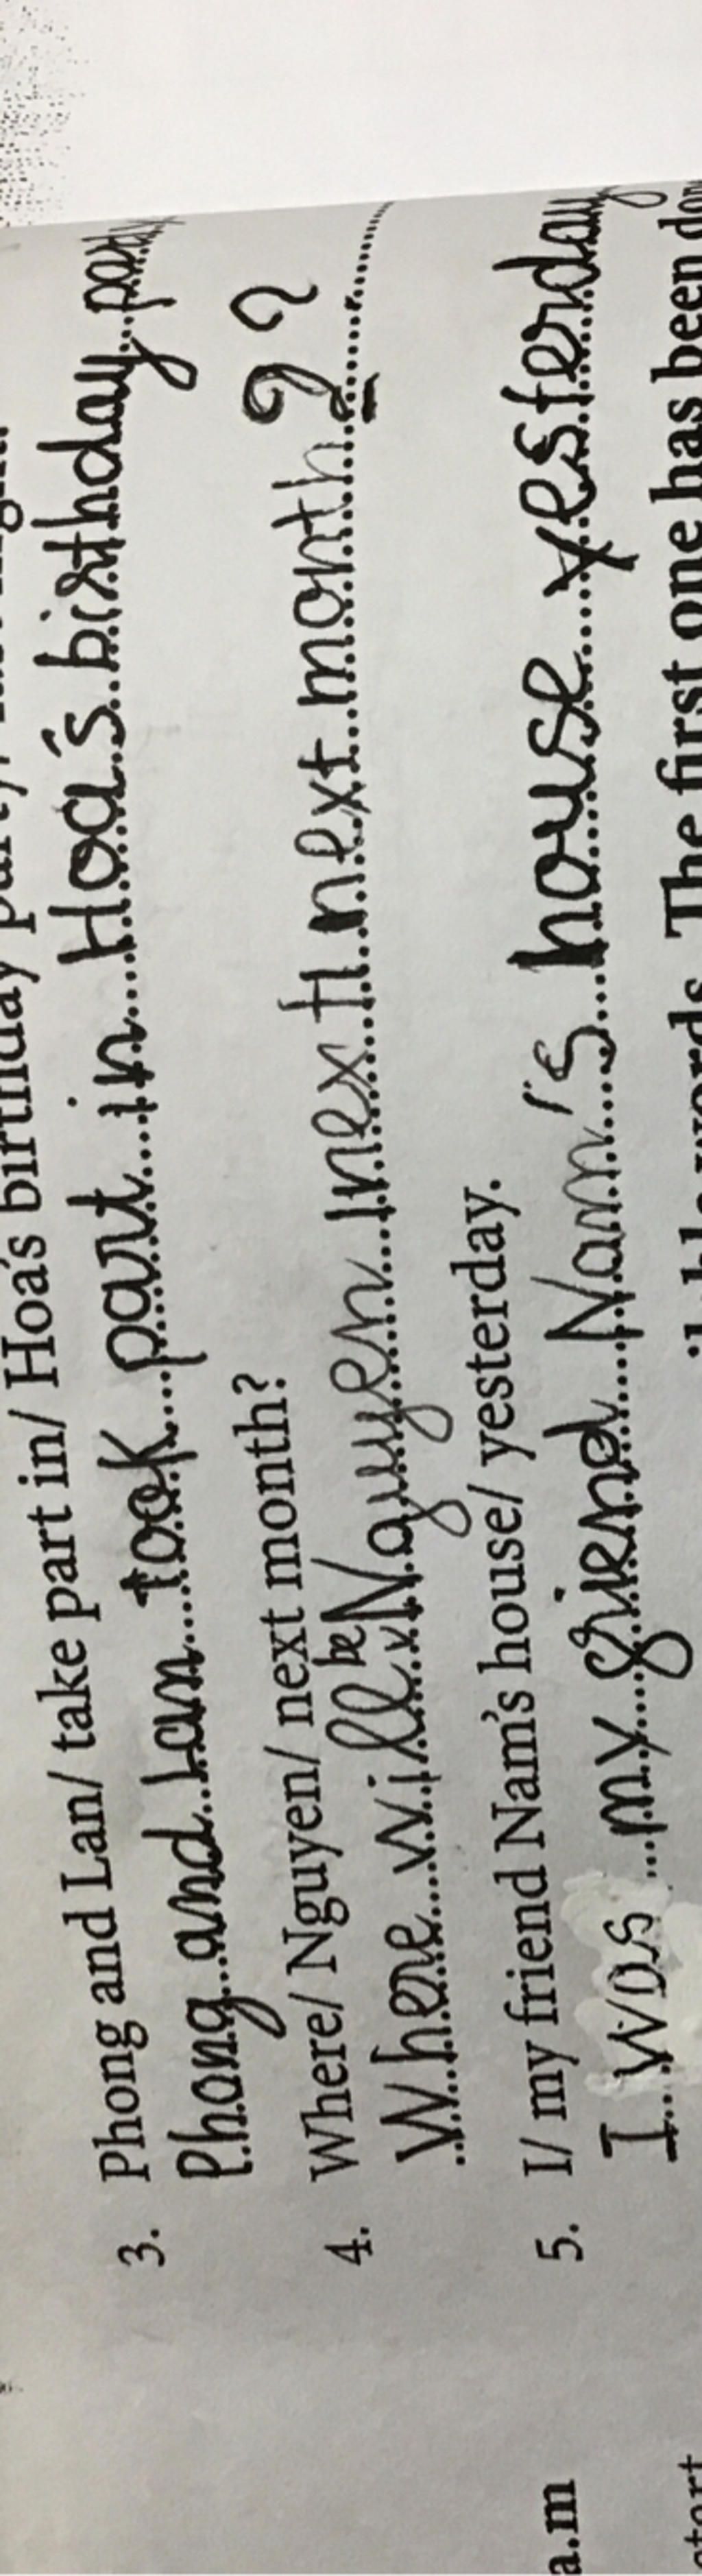 birthday
3. Phong and Lan/ take part in/ Hoa's birthday
Phong and Lan took part in Hoa's birthday party
4. Where/ Nguyen/ next month?
Where will be Nguyen next month ?
5. I/ my friend Nam's house/ yesterday.
I was my friend Nam's house yesterday
a.m words. The first one has been
start